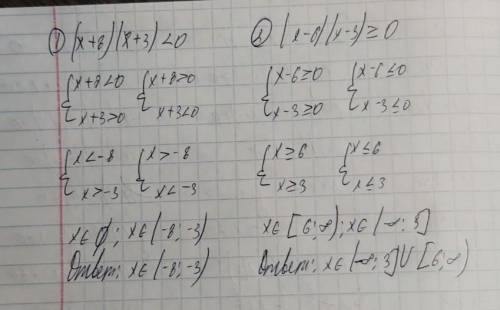 ① (x+8)(x+3)<0
{x+8<0 x+3>0 {x+8>0 x+3<0
{x<-8 x>-3 {x>-8 x<-3
x∈∅; x∈(-8;-3)
Ответ: x∈(-8;-3)
② (x-6)(x-3)≥0
{x-6≥0 x-3≥0 {x-6≤0 x-3≤0
{x≥6 x≥3 {x≤6 x≤3
x∈[6;∞); x∈(-∞;3]
Ответ: x∈(-∞;3]∪[6;∞)